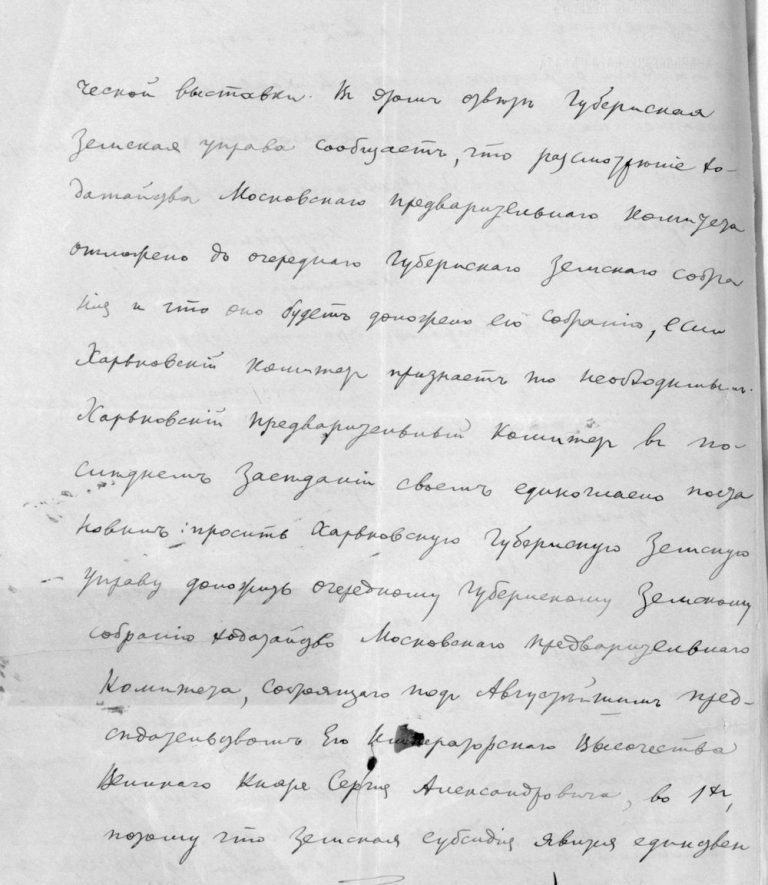 ческой выставки. Въ этомъ отвѣтѣ Губернская
Земская управа сообщаетъ, что разсмотрѣніе хо-
датайства Московскаго предварительнаго комитета
отложено до очередного Губернскаго Земскаго собра
нія и что оно будетъ доложено его собранію, если
Харьковскій комитетъ признаетъ то необходимымъ.
Харьковскій предварительный комитетъ въ по-
слѣднемъ засѣданіи своемъ единогласно поста
новилъ: просить Харьковскую Губернскую Земскую
управу доложить очередному Губернскому Земскому
собранію ходатайство Московскаго предварительнаго
комитета, состоящаго подъ Августѣйшимъ пред-
сѣдательствомъ Его Императорскаго Высочества
Великаго Князя Сергѣя Александровича, во 1хъ,
потому что земская субсидія явится единствен